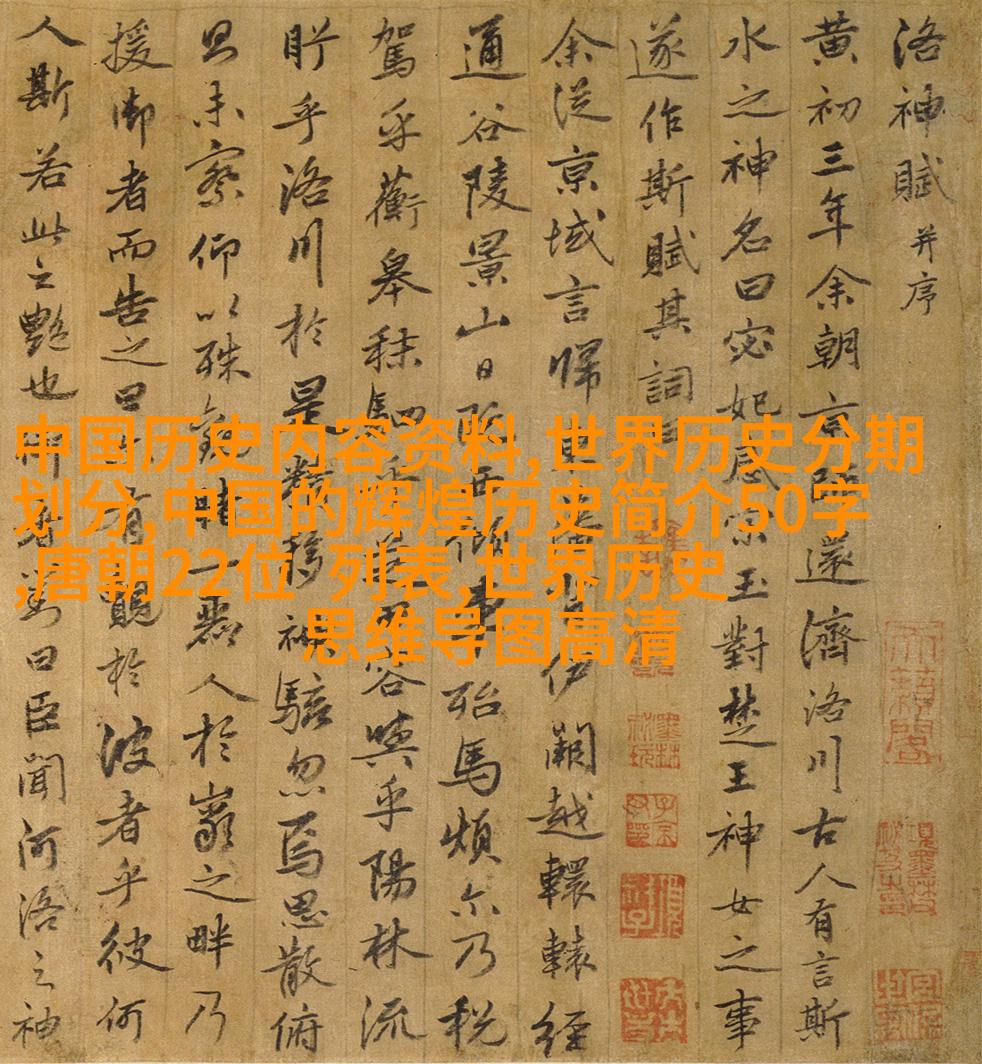 洛神賦并序
黄初三年余朝京師還濟洛川古人有言斯
水之神名曰宓妃感宋玉對楚王神女之事
遂作斯賦其詞曰
余從京域言歸東藩伊闕越轘轅經
通谷陵景山日既西傾車殆馬煩尒乃税
駕乎蘅皋秣駟乎芝田容與乎陽林流
眄乎洛川於是精移神駭忽焉思散俯
則未察仰以殊觀睹一麗人於巖之畔乃
援御者而告之曰有覿於彼者乎彼何
人斯若此之艷也御者對曰臣聞河洛之神
中国历史内容资料,世界历史分期
划分,中国的辉煌历史简介50字
,唐朝22位 列表,世界历史
思维导图高清